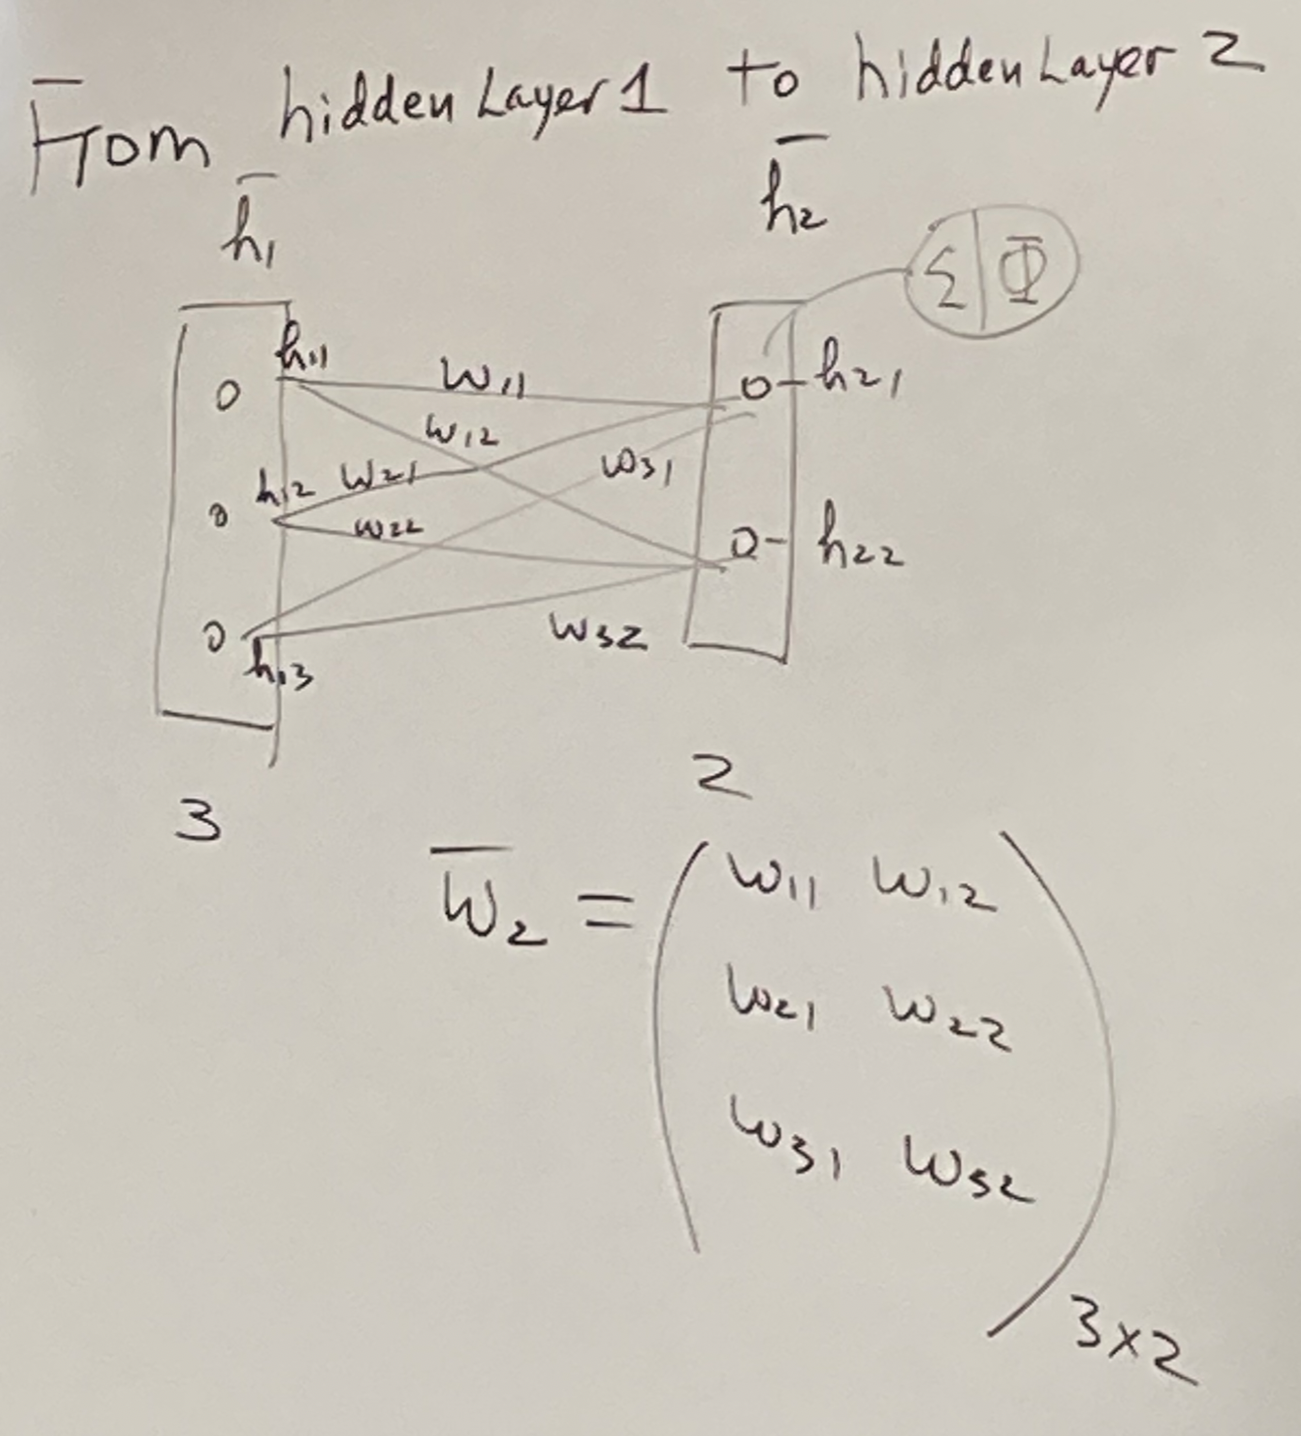 From hidden Layer 1 to hidden Layer 2
h̄₁ h̄₂
Σ | Φ
h₁₁ w₁₁ h₂₁
w₁₂
h₁₂ w₂₁ w₃₁
w₂₂ h₂₂
h₁₃ w₃₂
3 2
W̄₂ = ( w₁₁ w₁₂
w₂₁ w₂₂
w₃₁ w₃₂ ) 3×2